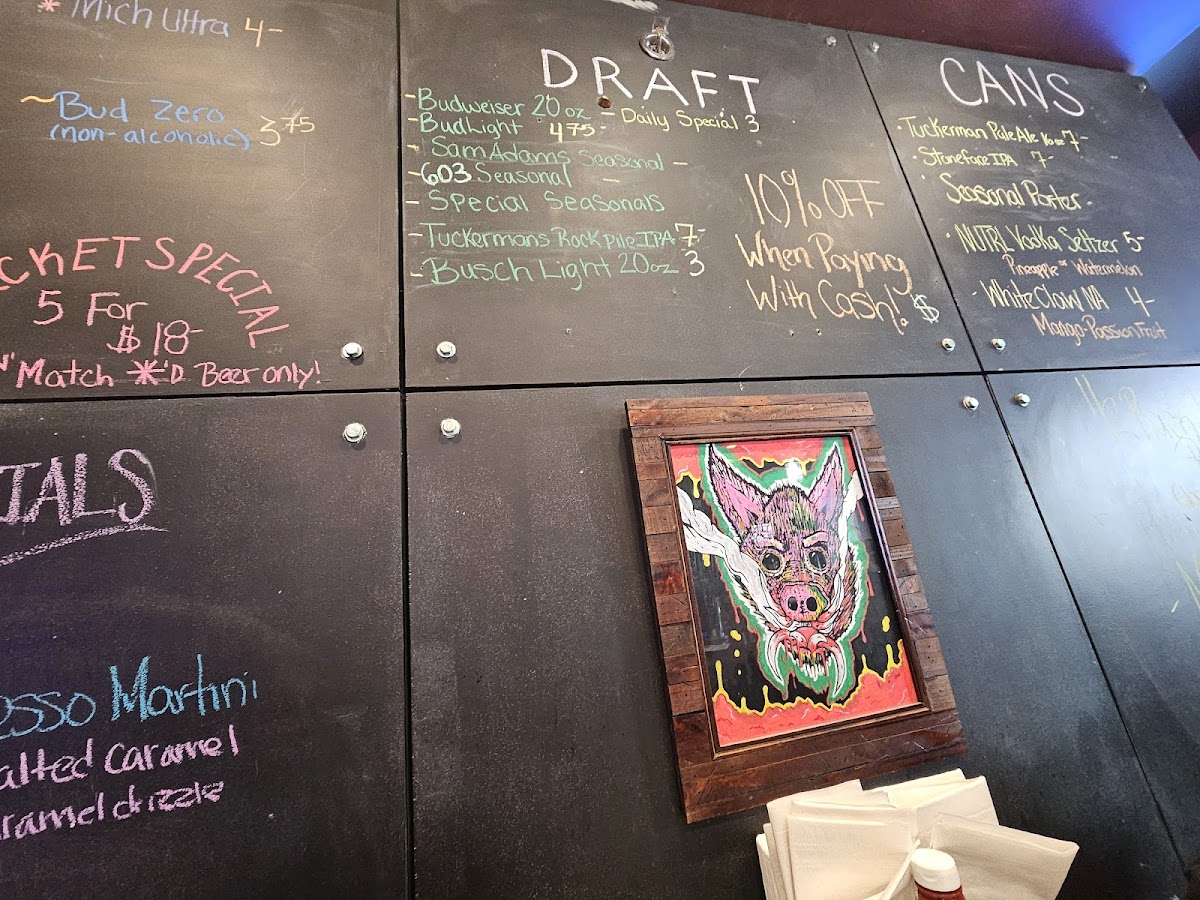 * Mich Ultra 4-
~Bud Zero
(non-alcoholic) 3 75
5 For
$18-
Match *'D Beer only!
Martini
caramel
drizzle
DRAFT
-Budweiser 20oz - Daily Special 3
-BudLight 4 75-
-Sam Adams Seasonal -
-603 Seasonal -
- Special Seasonals
-Tuckermans Rockpile IPA 7-
-Busch Light 20oz 3
10% OFF
When Paying
With Cash! $
CANS
-Tuckerman Pale Ale 16oz 7-
-Stoneface IPA 7-
-Seasonal Porter-
-NUTRL Vodka Seltzer 5-
Pineapple or Watermelon
-White Claw NA 4-
Mango-Passion Fruit